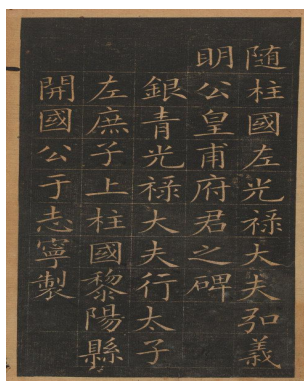 随柱國左光禄大夫弘義
明公皇甫府君之碑
銀青光禄大夫行太子
左庶子上柱國黎陽縣
開國公于志寧製